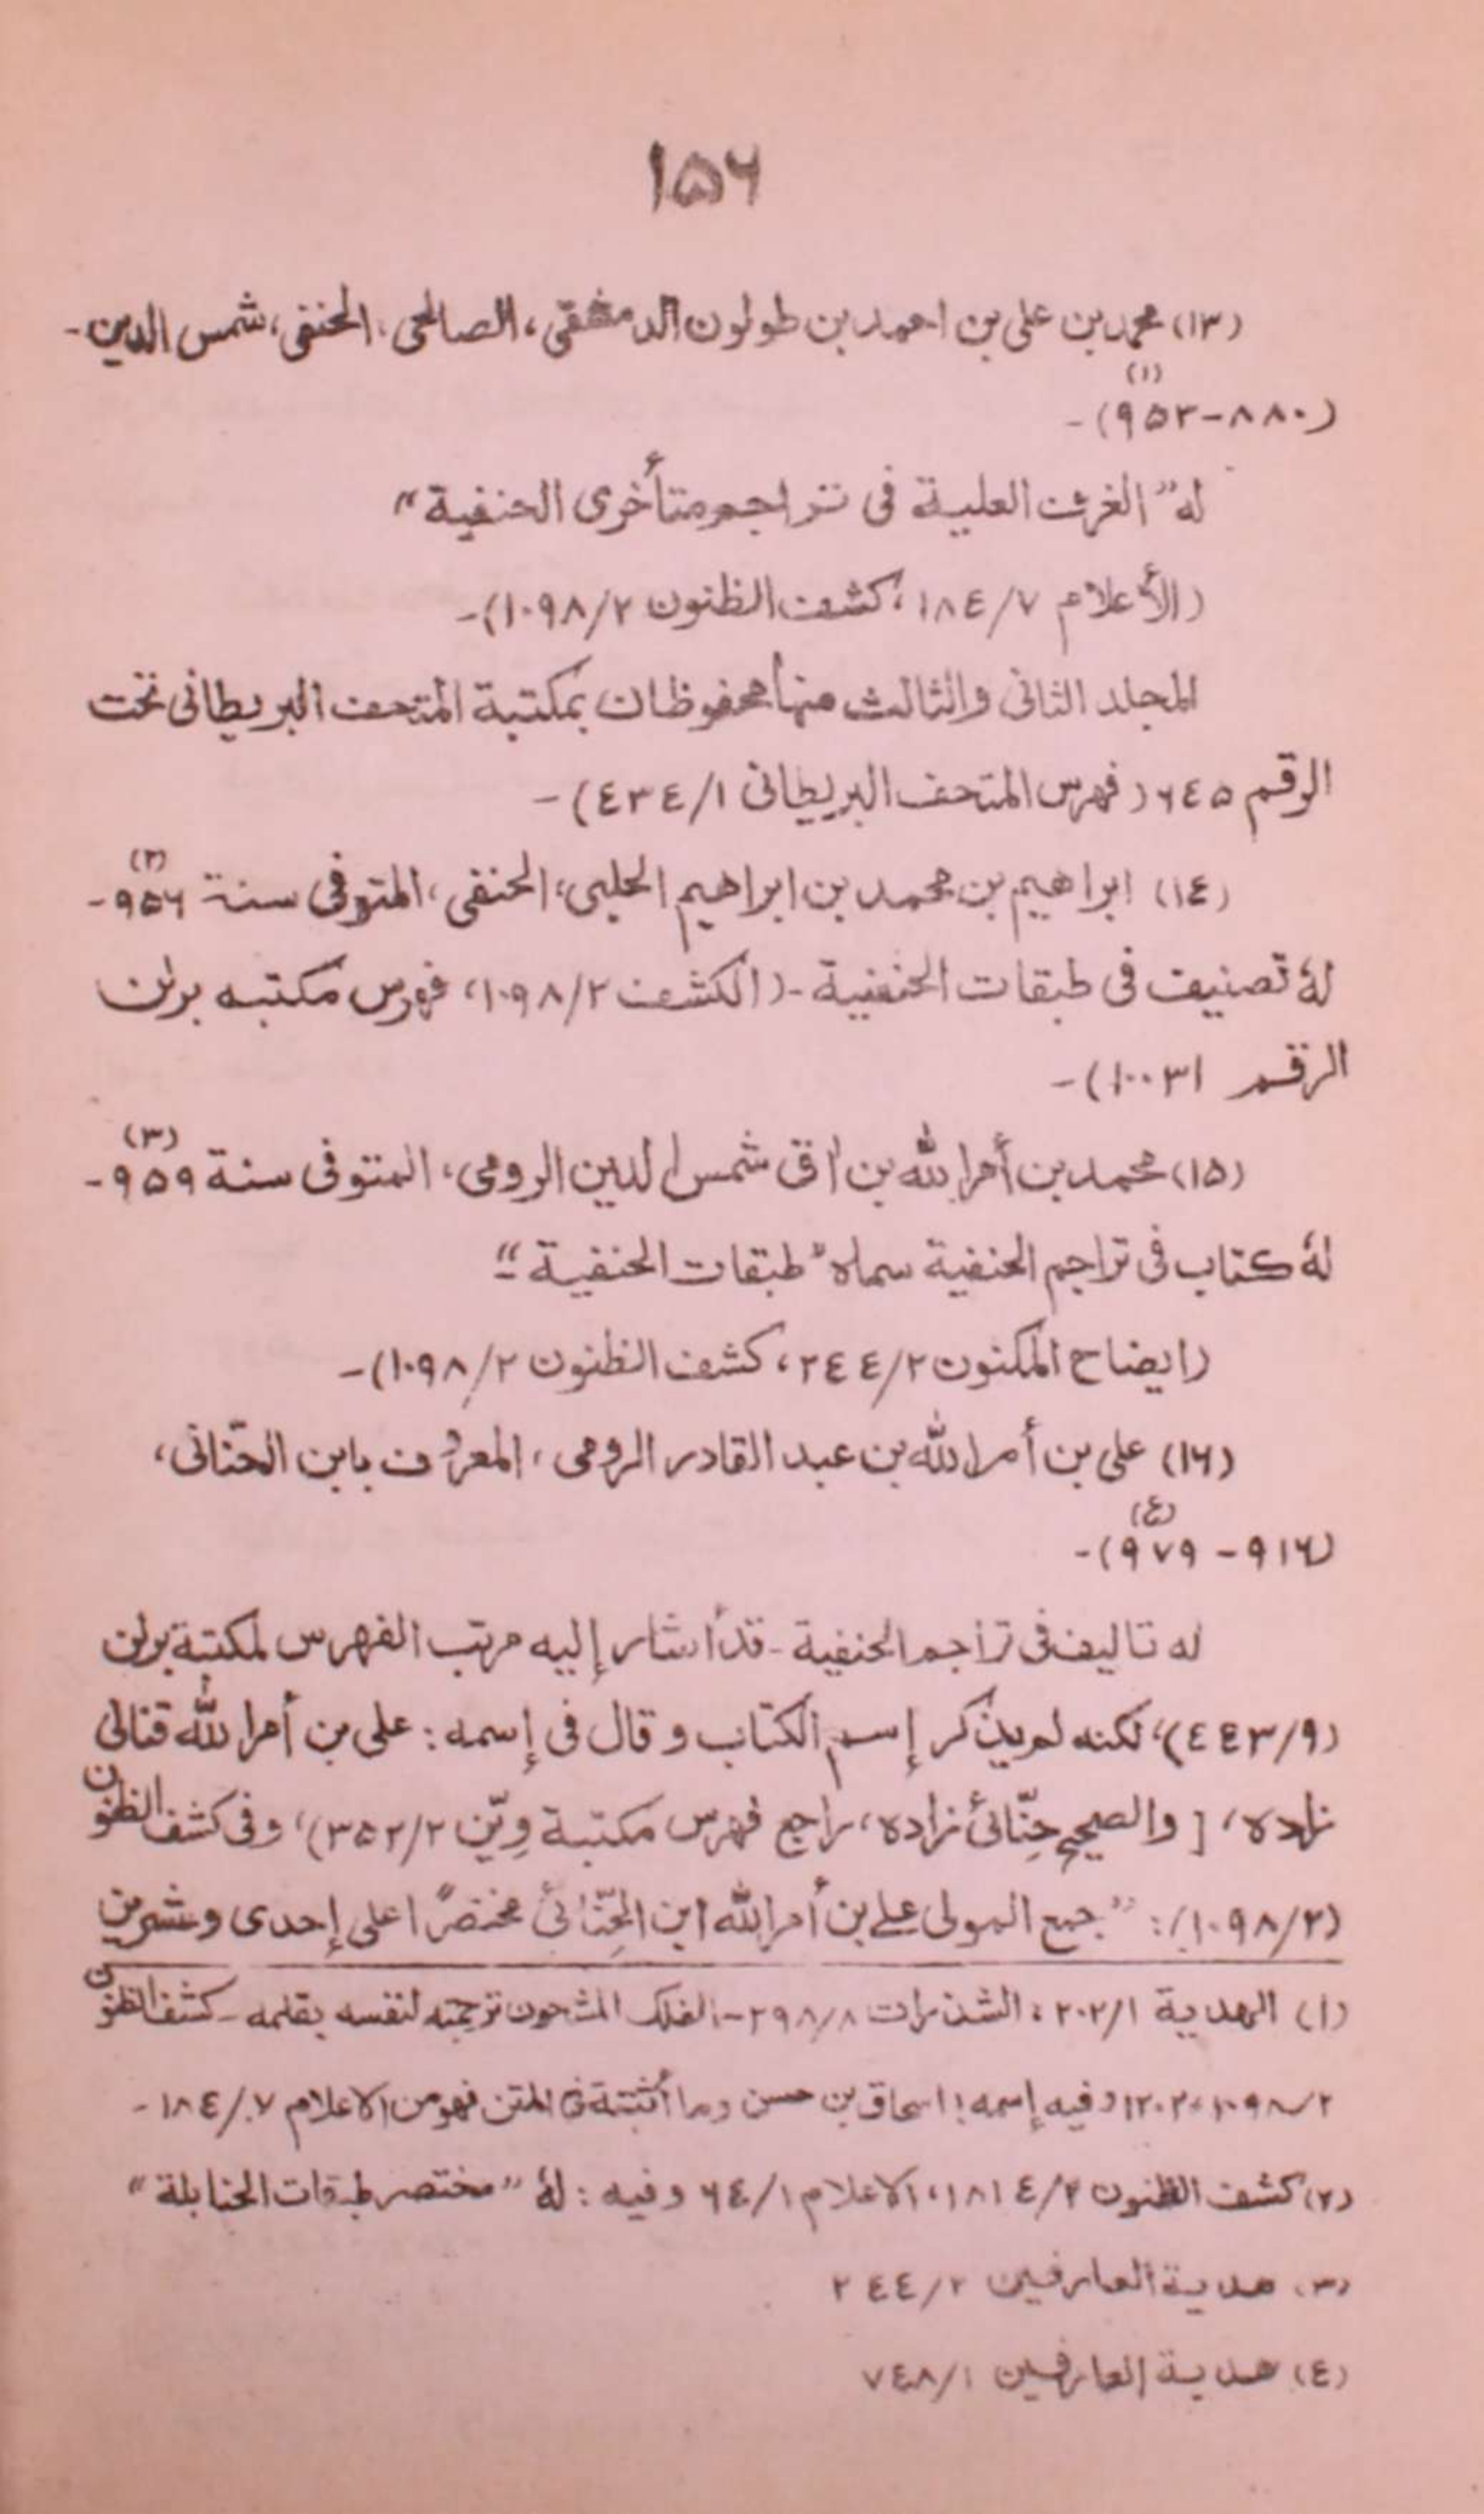 ١٥٦
(١٣) محمد بن على بن احمد بن طولون الدمشقى، الصالحى، الحنفى، شمس الدين-
(٨٨٠-٩٥٣)(١)-
له "الغرف العلية فى تراجم متأخرى الحنفية"
(الأعلام ٧/١٨٤، كشف الظنون ٢/١٠٩٨)-
المجلد الثانى والثالث منها محفوظان بمكتبة المتحف البريطانى تحت
الرقم ٦٤٥ (فهرس المتحف البريطانى ١/٤٣٤)-
(١٤) ابراهيم بن محمد بن ابراهيم الحلبى، الحنفى، المتوفى سنة ٩٥٦(٢)-
لهٗ تصنيف فى طبقات الحنفية-(الكشف ٢/١٠٩٨، فهرس مكتبه برلن
الرقم ١٠٠٣١)-
(١٥) محمد بن أمر الله بن اق شمس الدين الرومى، المتوفى سنة ٩٥٩(٣)-
لهٗ كتاب فى تراجم الحنفية سماه "طبقات الحنفية"-
(ايضاح المكنون ٢/٢٤٤، كشف الظنون ٢/١٠٩٨)-
(١٦) على بن أمر الله بن عبد القادر الرومى، المعروف بابن الحنّانى،
(٩١٦-٩٧٩)(٤)-
له تاليف فى تراجم الحنفية-قد أشار إليه مرتب الفهرس لمكتبة برلن
(٩/٤٤٣)، لكنه لم يذكر إسم الكتاب وقال فى إسمه: على بن أمر الله قنالى
زاده، [والصحيح حِنّائى زاده، راجع فهرس مكتبة وِيّن ٢/٣٥٢)، وفى كشف الظنون
(٢/١٠٩٨): "جمع المولى على بن أمر الله ابن الحِنّائى مختصرًا على إحدى وعشرين
(١) الهدية ١/٢٠٢، الشذرات ٨/٢٩٨-الفلك المشحون ترجمته لنفسه بقلمه-كشف الظنون
٢/١٠٩٨، ١٢٠٢ وفيه إسمه: اسحاق بن حسن وما أثبتة فى المتن فهو من الاعلام ٧/١٨٤-
(٢) كشف الظنون ٢/١٨١٤، الاعلام ١/٦٤ وفيه: لهٗ "مختصر طبقات الحنابلة"
(٣) هدية العارفين ٢/٢٤٤
(٤) هدية العارفين ١/٧٤٨